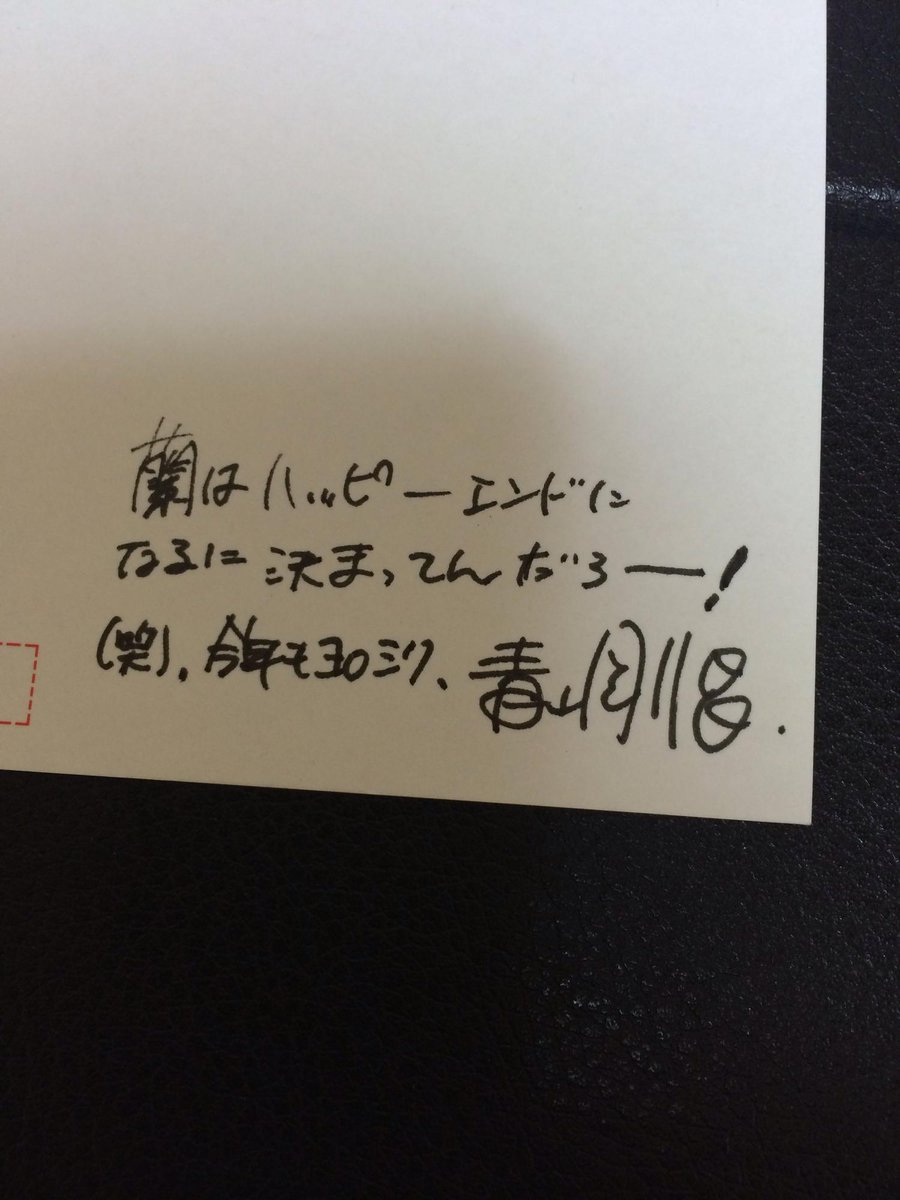 蘭はハッピーエンドに
なるに決まってんだろー!
(笑)、今年もヨロシク、青山剛昌.